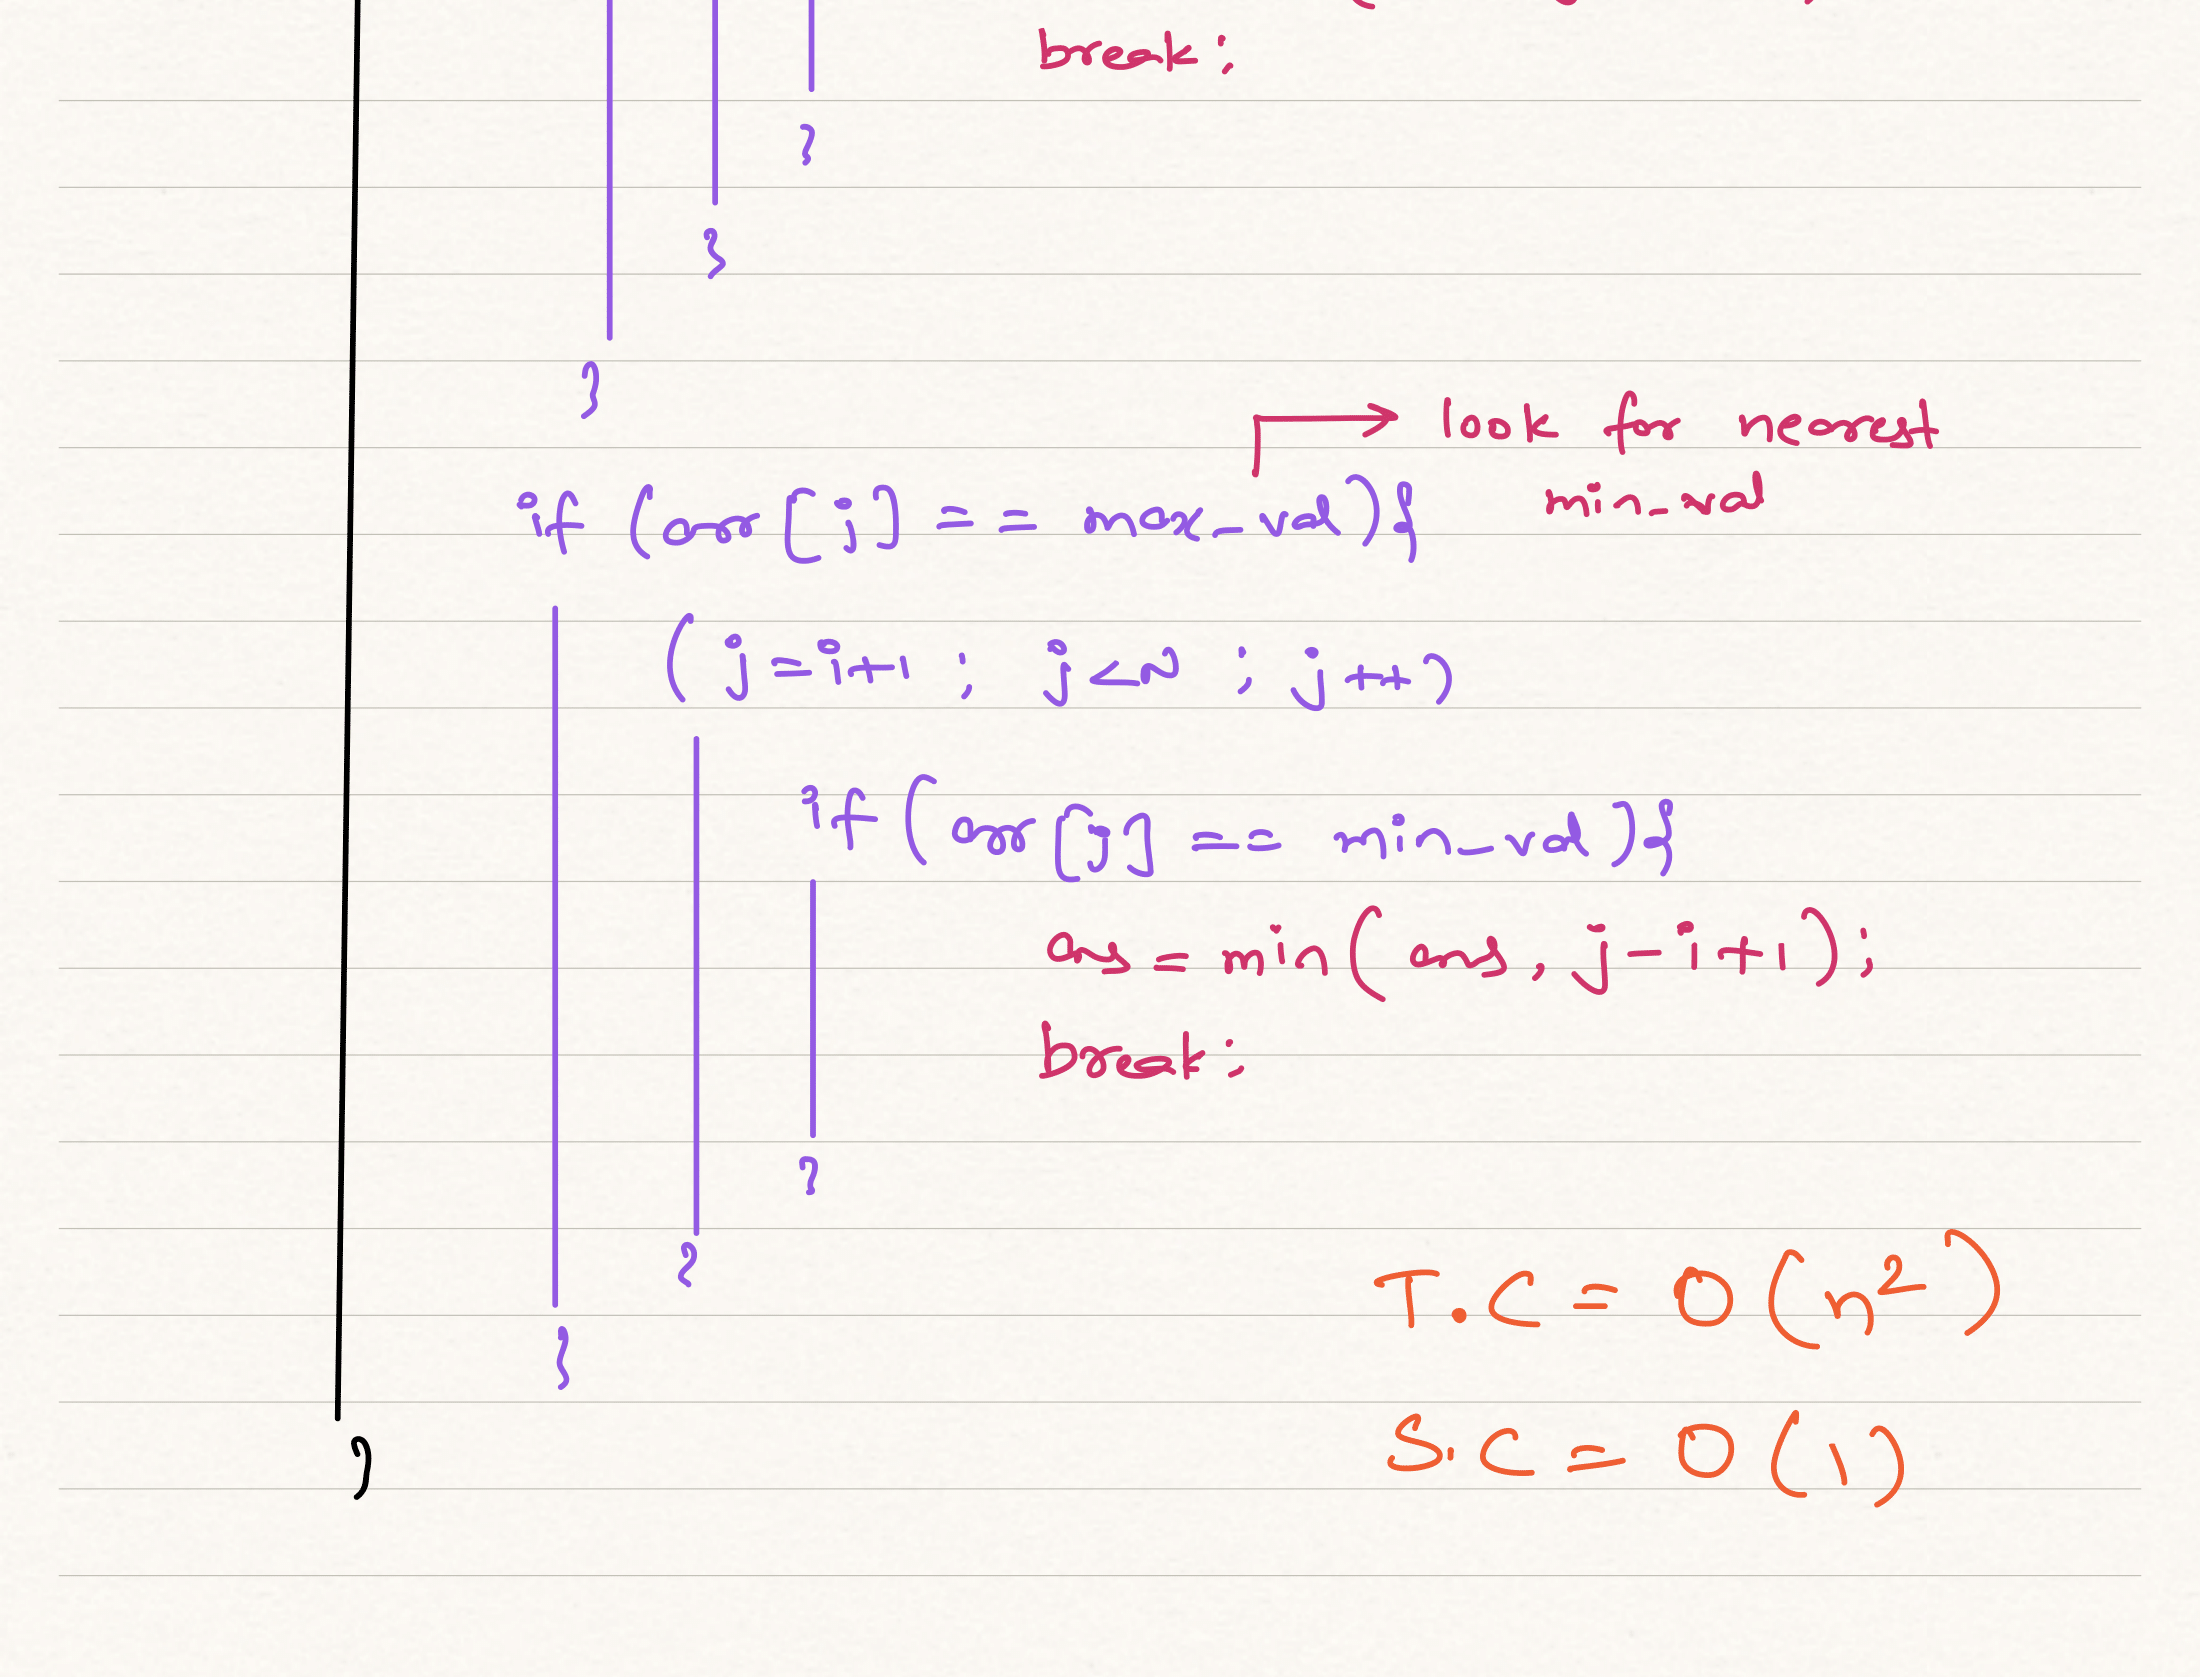 break;
}
}
}
look for nearest
min_val
if (arr[j] == max_val){
(j=i+1 ; j<N ; j++)
if (arr[j] == min_val){
ans = min(ans, j-i+1);
break;
}
}
}
}
T.C = O(n²)
S.C = O(1)